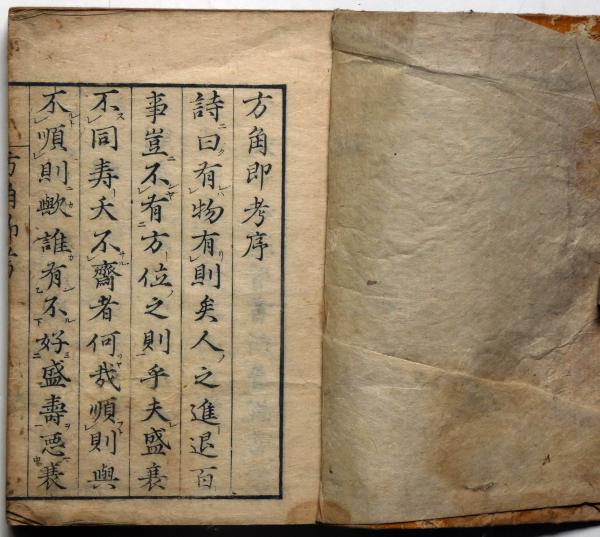 方角即考序
詩曰有物有則矣人之進退百
事豈不有方位之則乎夫盛衰
不同寿夭不齊者何哉順則與
不順則歟誰有不好盛壽惡衰
方角即考